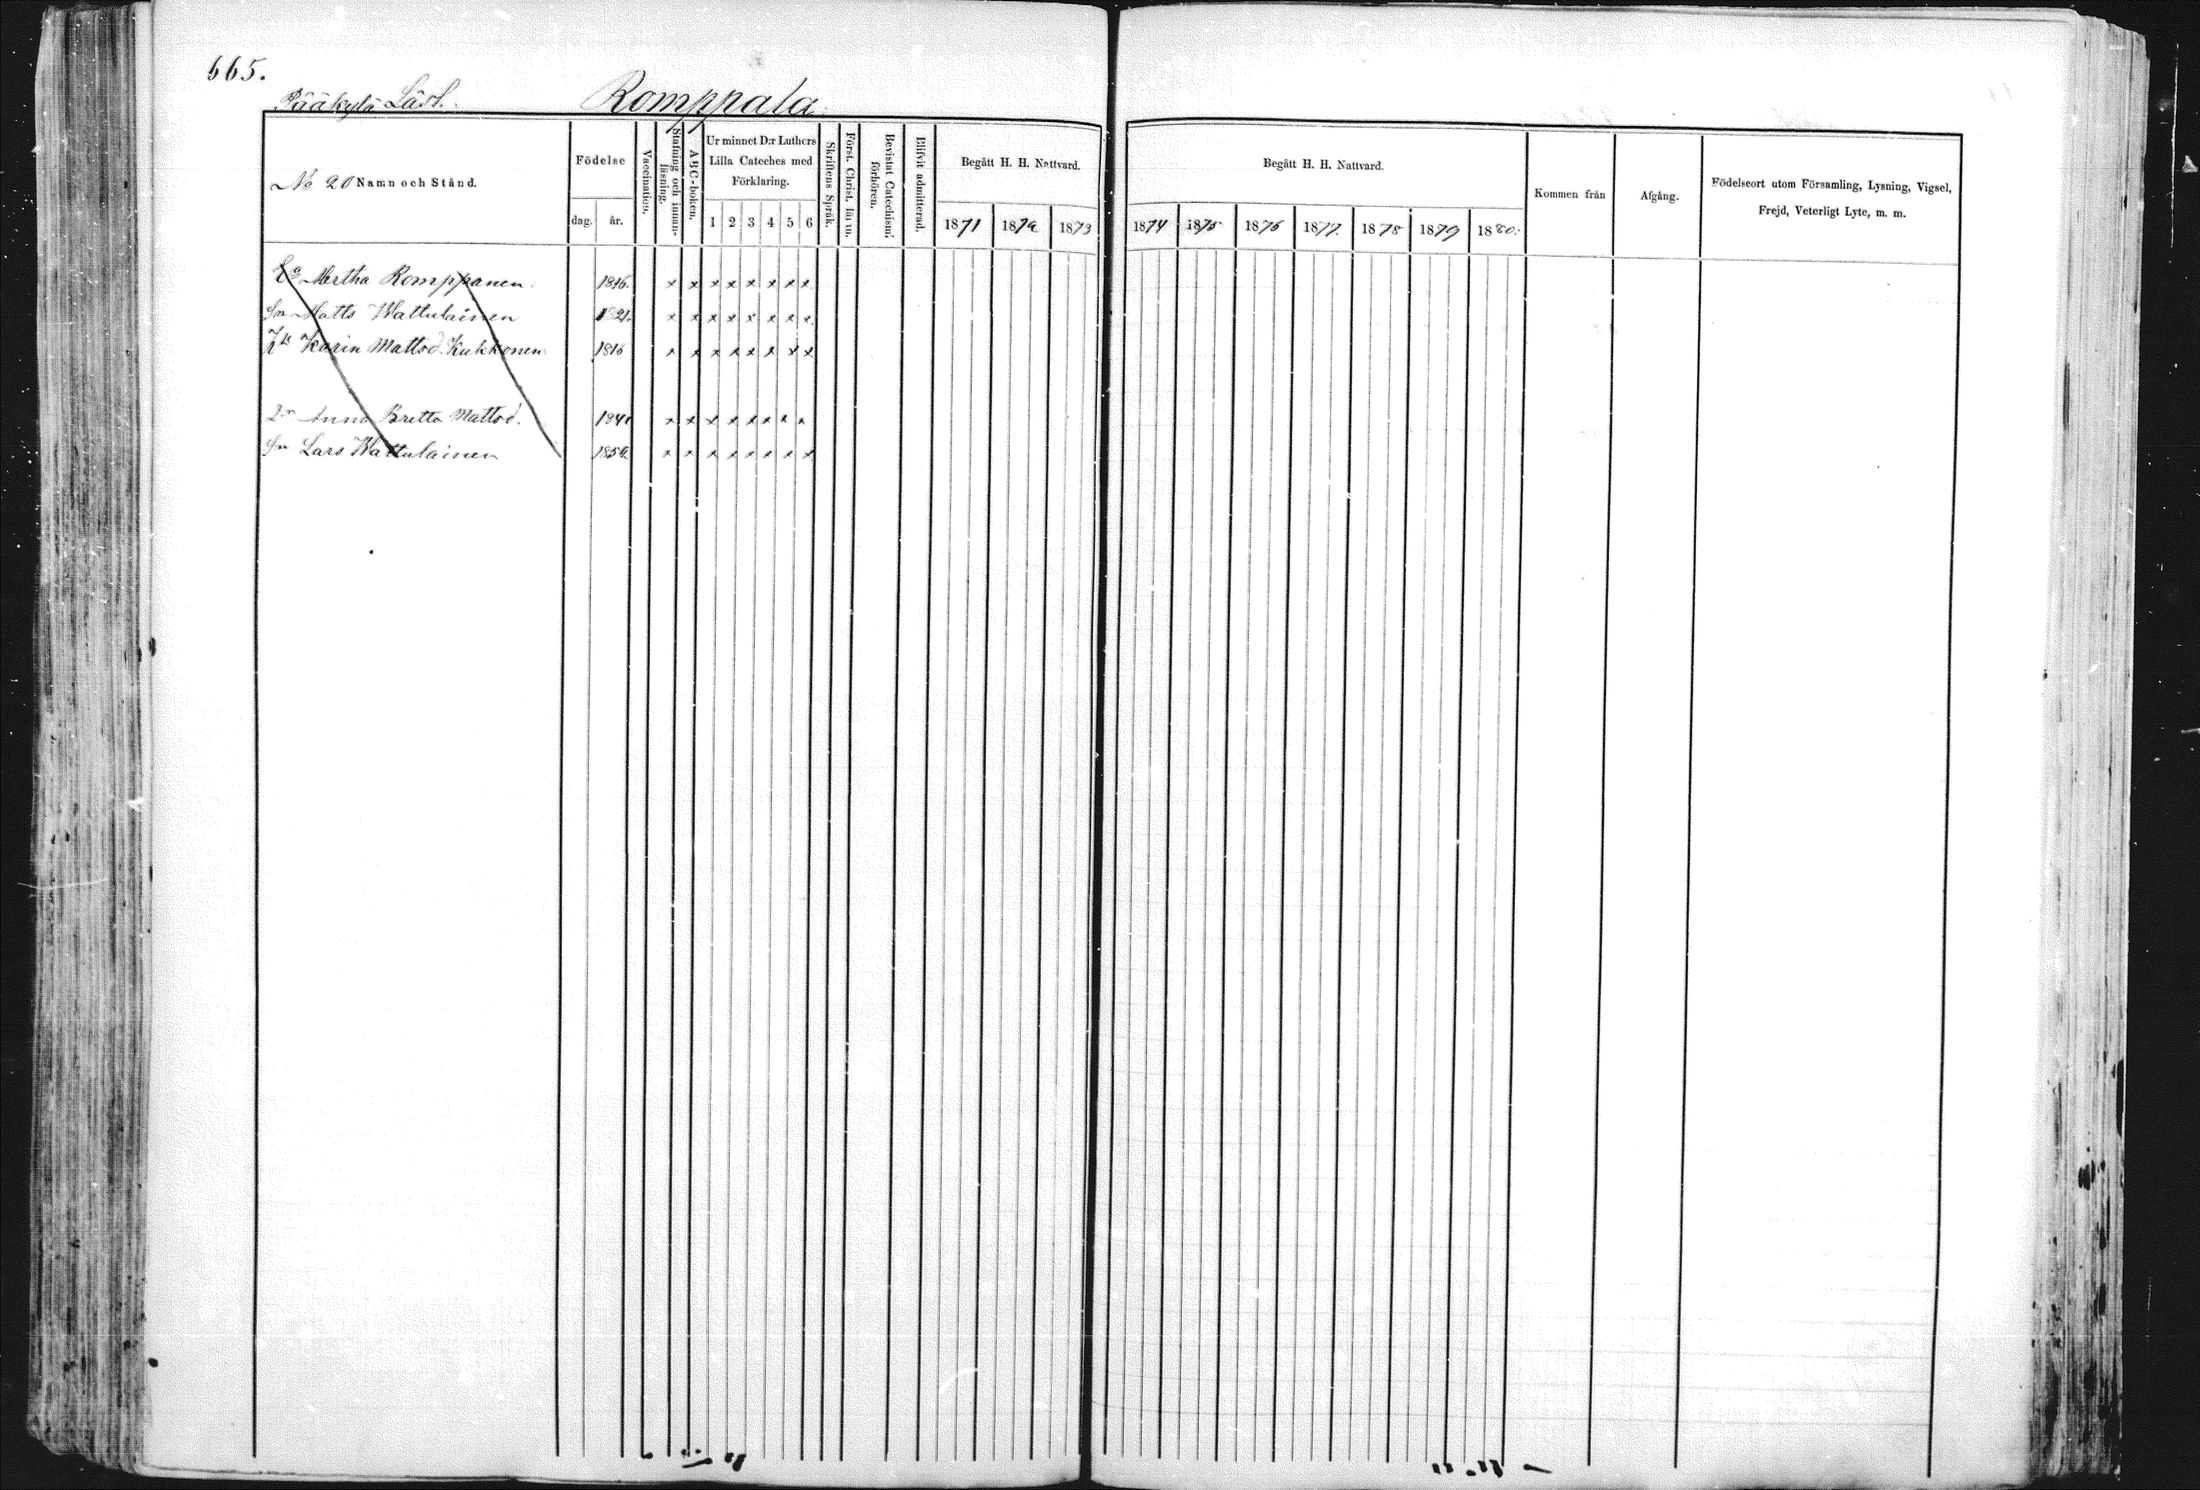 665.
Pääkylä Läsl. Romppala
No 20 Namn och Stånd.
Födelse
dag. år.
Vaccination.
Stafning och innan-läsning.
ABC-boken.
Ur minnet D:r Luthers
Lilla Cateches med
Förklaring.
1 2 3 4 5 6
Skriftens Språk.
Först. Christ. lärn.
Bevistat Catechismi förhören.
Blifvit admitterad.
Begått H. H. Nattvard.
1871 1872 1873
Begått H. H. Nattvard.
1874 1875 1876 1877 1878 1879 1880.
Kommen från
Afgång.
Födelseort utom Församling, Lysning, Vigsel,
Frejd, Veterligt Lyte, m. m.
Mertha Romppanen. 1816. x x x x x x x x
Sn Matts Wattulainen 1821. x x x x x x x x
Karin Mattsd. Kukkonen 1816 x x x x x x x x
Dr Anna Britta Mattsd. x x x x x x x x
Sn Lars Wattulainen x x x x x x x x